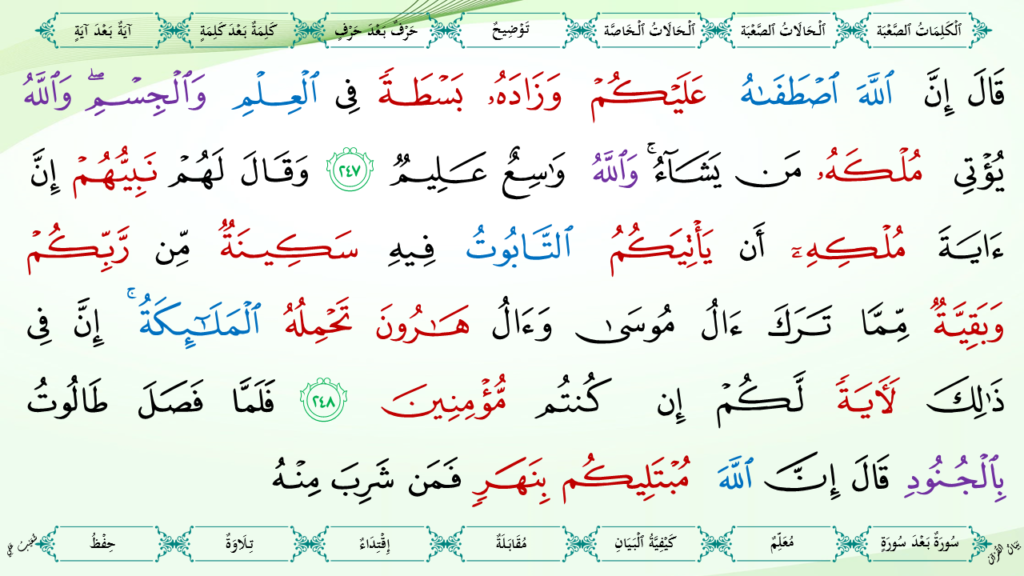 اَلْكَلِمَاتُ الصَّعْبَة اَلْحَالَاتُ الصَّعْبَة اَلْحَالَاتُ الْخَاصَّة تَوْضِيحٌ حَرْفٌ بَعْدَ حَرْفٍ كَلِمَةٌ بَعْدَ كَلِمَةٍ آيَةٌ بَعْدَ آيَةٍ
قَالَ إِنَّ ٱللَّهَ ٱصْطَفَىٰهُ عَلَيْكُمْ وَزَادَهُۥ بَسْطَةً فِى ٱلْعِلْمِ وَٱلْجِسْمِ ۖ وَٱللَّهُ
يُؤْتِى مُلْكَهُۥ مَن يَشَآءُ ۚ وَٱللَّهُ وَٰسِعٌ عَلِيمٌ ٢٤٧ وَقَالَ لَهُمْ نَبِيُّهُمْ إِنَّ
ءَايَةَ مُلْكِهِۦٓ أَن يَأْتِيَكُمُ ٱلتَّابُوتُ فِيهِ سَكِينَةٌ مِّن رَّبِّكُمْ
وَبَقِيَّةٌ مِّمَّا تَرَكَ ءَالُ مُوسَىٰ وَءَالُ هَـٰرُونَ تَحْمِلُهُ ٱلْمَلَـٰٓئِكَةُ ۚ إِنَّ فِى
ذَٰلِكَ لَـَٔايَةً لَّكُمْ إِن كُنتُم مُّؤْمِنِينَ ٢٤٨ فَلَمَّا فَصَلَ طَالُوتُ
بِٱلْجُنُودِ قَالَ إِنَّ ٱللَّهَ مُبْتَلِيكُم بِنَهَرٍ فَمَن شَرِبَ مِنْهُ
سُورَةٌ بَعْدَ سُورَةٍ مُعَلِّمٌ كَيْفِيَّةُ الْبَيَانِ مُقَابَلَةٌ إِقْتِدَاءٌ تِلَاوَةٌ حِفْظٌ
بَيَانُ الْقُرْآن